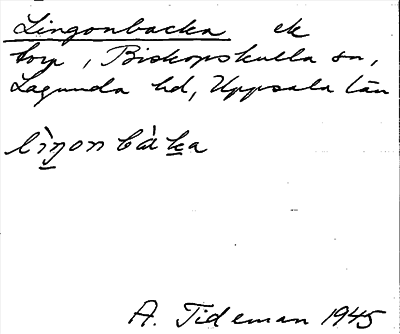 Lingonbacka ek
torp, Biskopskulla sn,
Lagunda hd, Uppsala län
lìŋonbàka
A. Tideman 1945